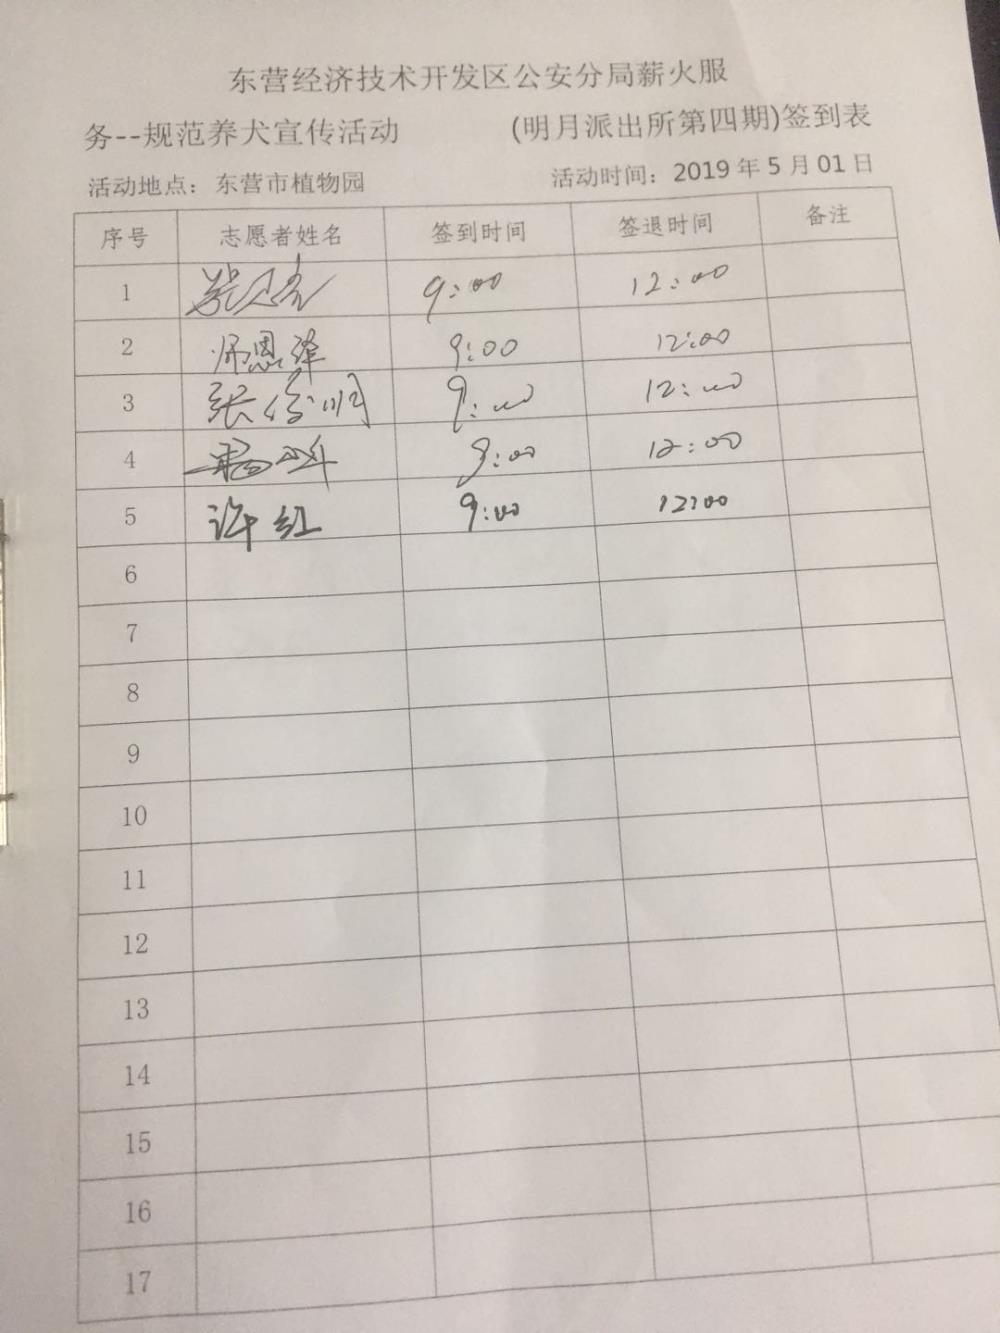 东营经济技术开发区公安分局薪火服
务--规范养犬宣传活动 (明月派出所第四期)签到表
活动地点：东营市植物园 活动时间：2019年5月01日
序号 志愿者姓名 签到时间 签退时间 备注
1 9:00 12:00
2 师恩泽 9:00 12:00
3 张俊明 9:00 12:00
4 9:00 12:00
5 许红 9:00 12:00
6
7
8
9
10
11
12
13
14
15
16
17